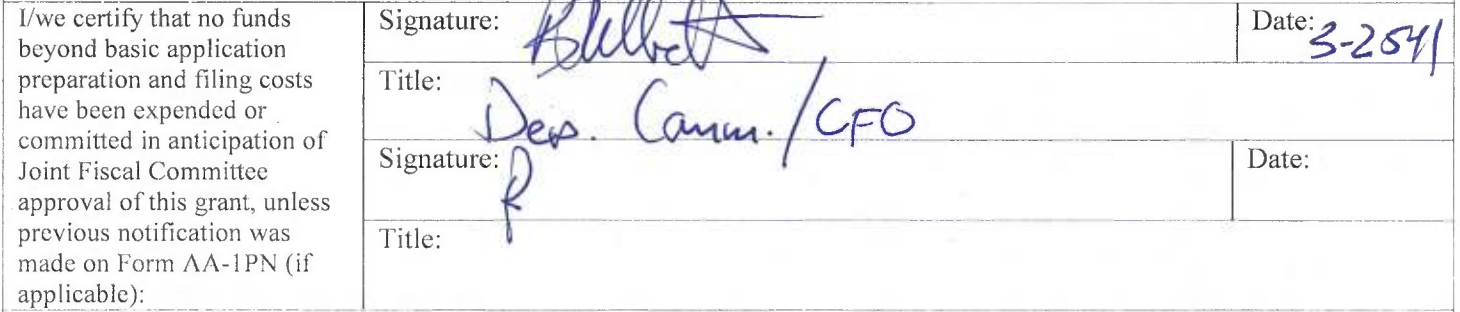 I/we certify that no funds
beyond basic application
preparation and filing costs
have been expended or
committed in anticipation of
Joint Fiscal Committee
approval of this grant, unless
previous notification was
made on Form AA-1PN (if
applicable):
Signature:
Date:
Title:
Dep. Comm./CFO
Signature:
Date:
Title: